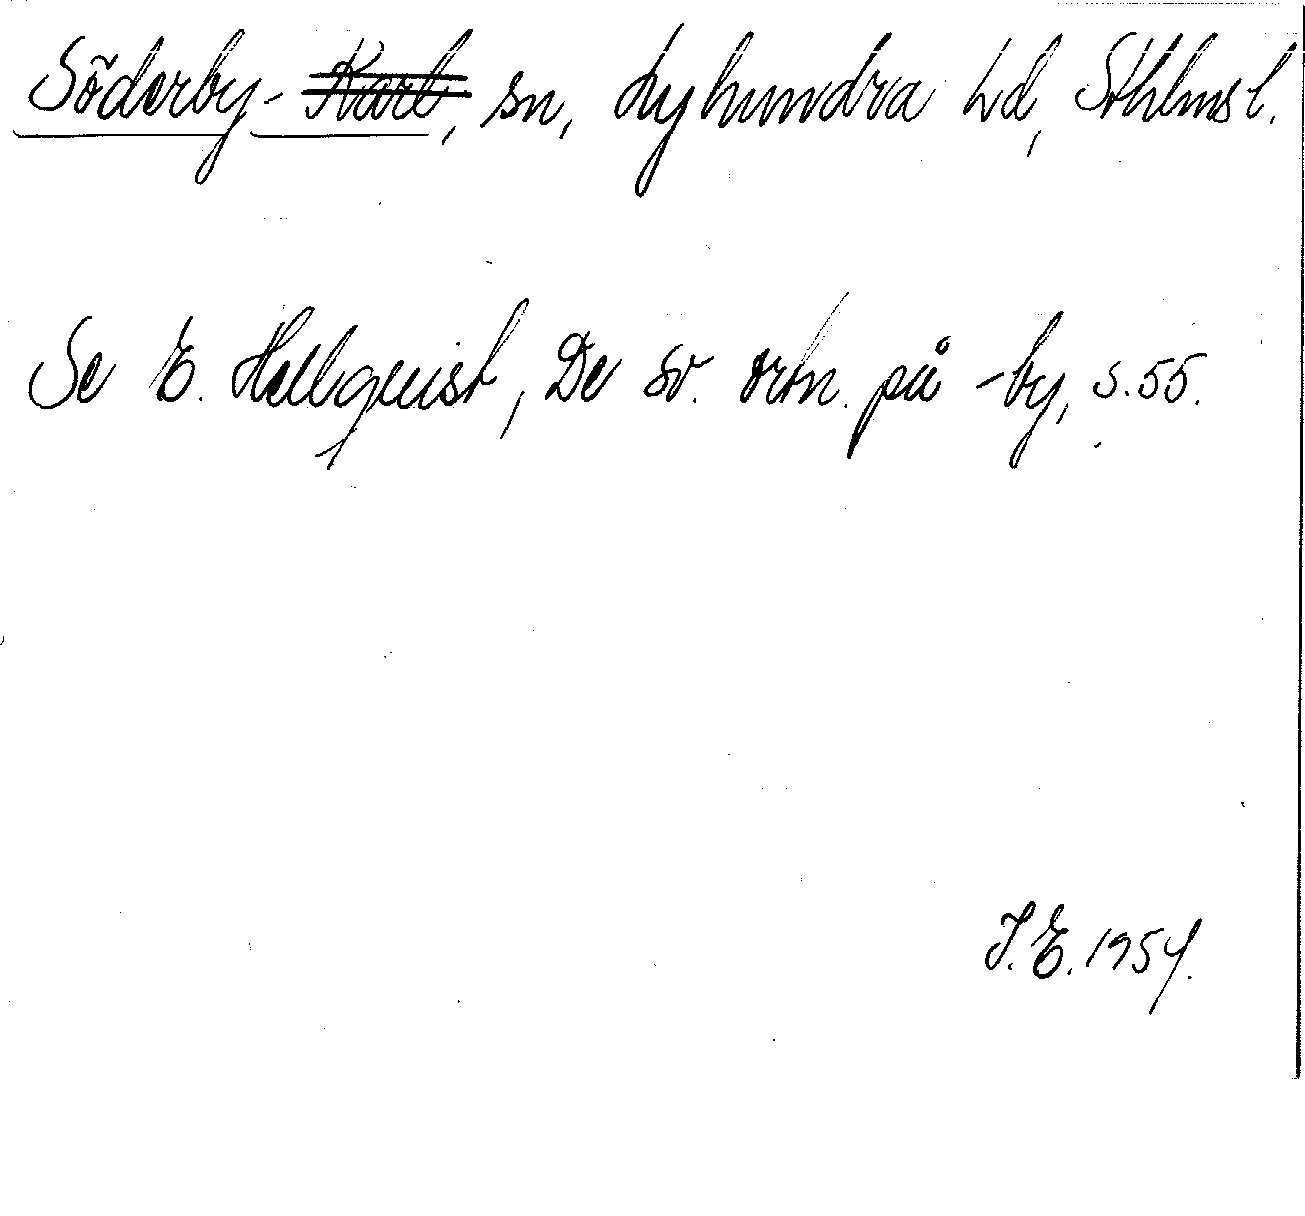 Söderby-Karl, sn, Lyhundra hd, Sthlms l.
Se E. Hellquist, De sv. ortn. på -by, s. 55.
I. E. 1954.